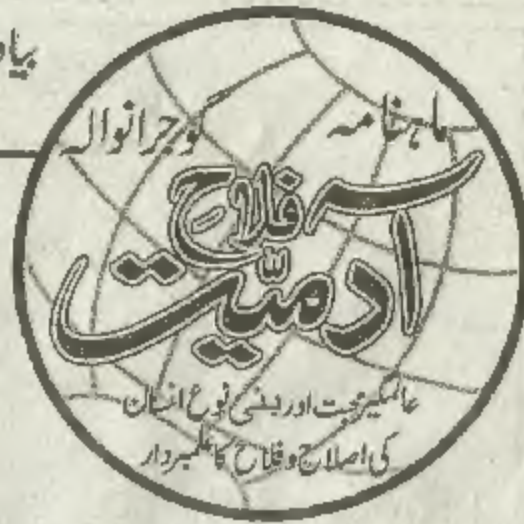 بیاد
ماہنامہ گوجرانوالہ
فلاح
آدمیت
عالمگیر محبت اور بنی نوع انسان
کی اصلاح و فلاح کا علمبردار